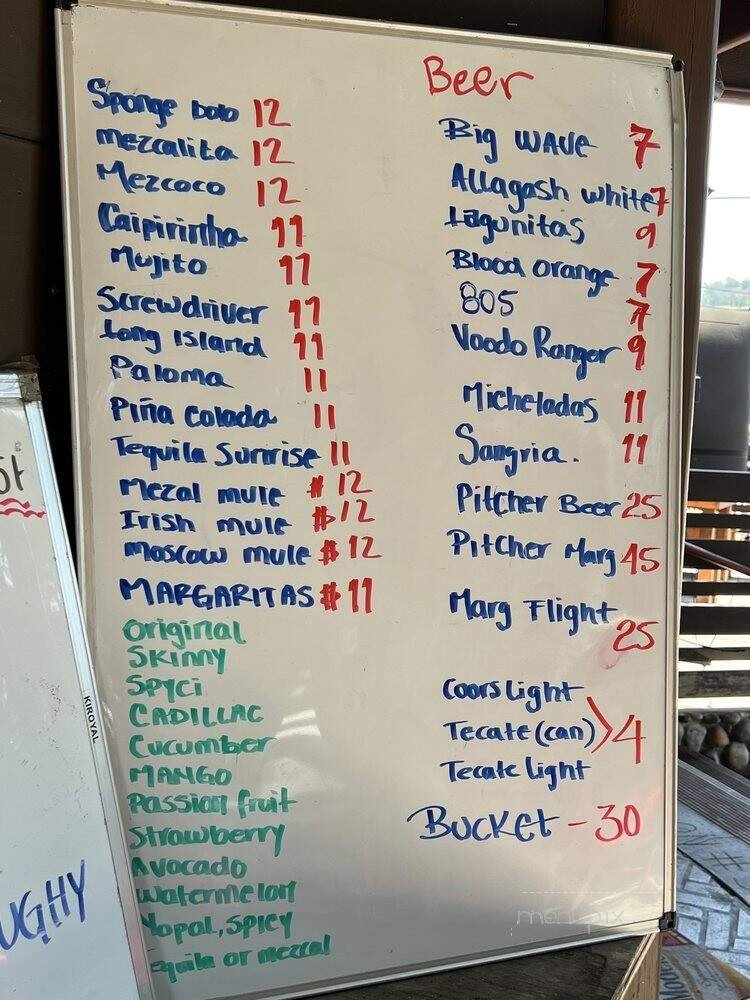 Sponge bob 12
mezcalita 12
Mezcoco 12
Caipirinha 11
Mojito 11
Screwdriver 11
Long Island 11
Paloma 11
Piña Colada 11
Tequila Sunrise 11
Mezal mule $12
Irish mule $12
Moscow mule $12
MARGARITAS $11
Original
SKINNY
SPYCi
CADILLAC
Cucumber
MANGO
Passion fruit
Strawberry
Avocado
Watermelon
Nopal, SPICY
equila or mezcal
Beer
Big WAVE 7
Allagash White 7
Lagunitas 9
Blood orange 7
805 7
Voodo Ranger 9
Micheladas 11
Sangria. 11
Pitcher Beer 25
Pitcher Marg 45
Marg Flight 25
Coors Light
Tecate (can) 4
Tecate Light
BUCKET - 30
KIROYAL
UGHY
menupix